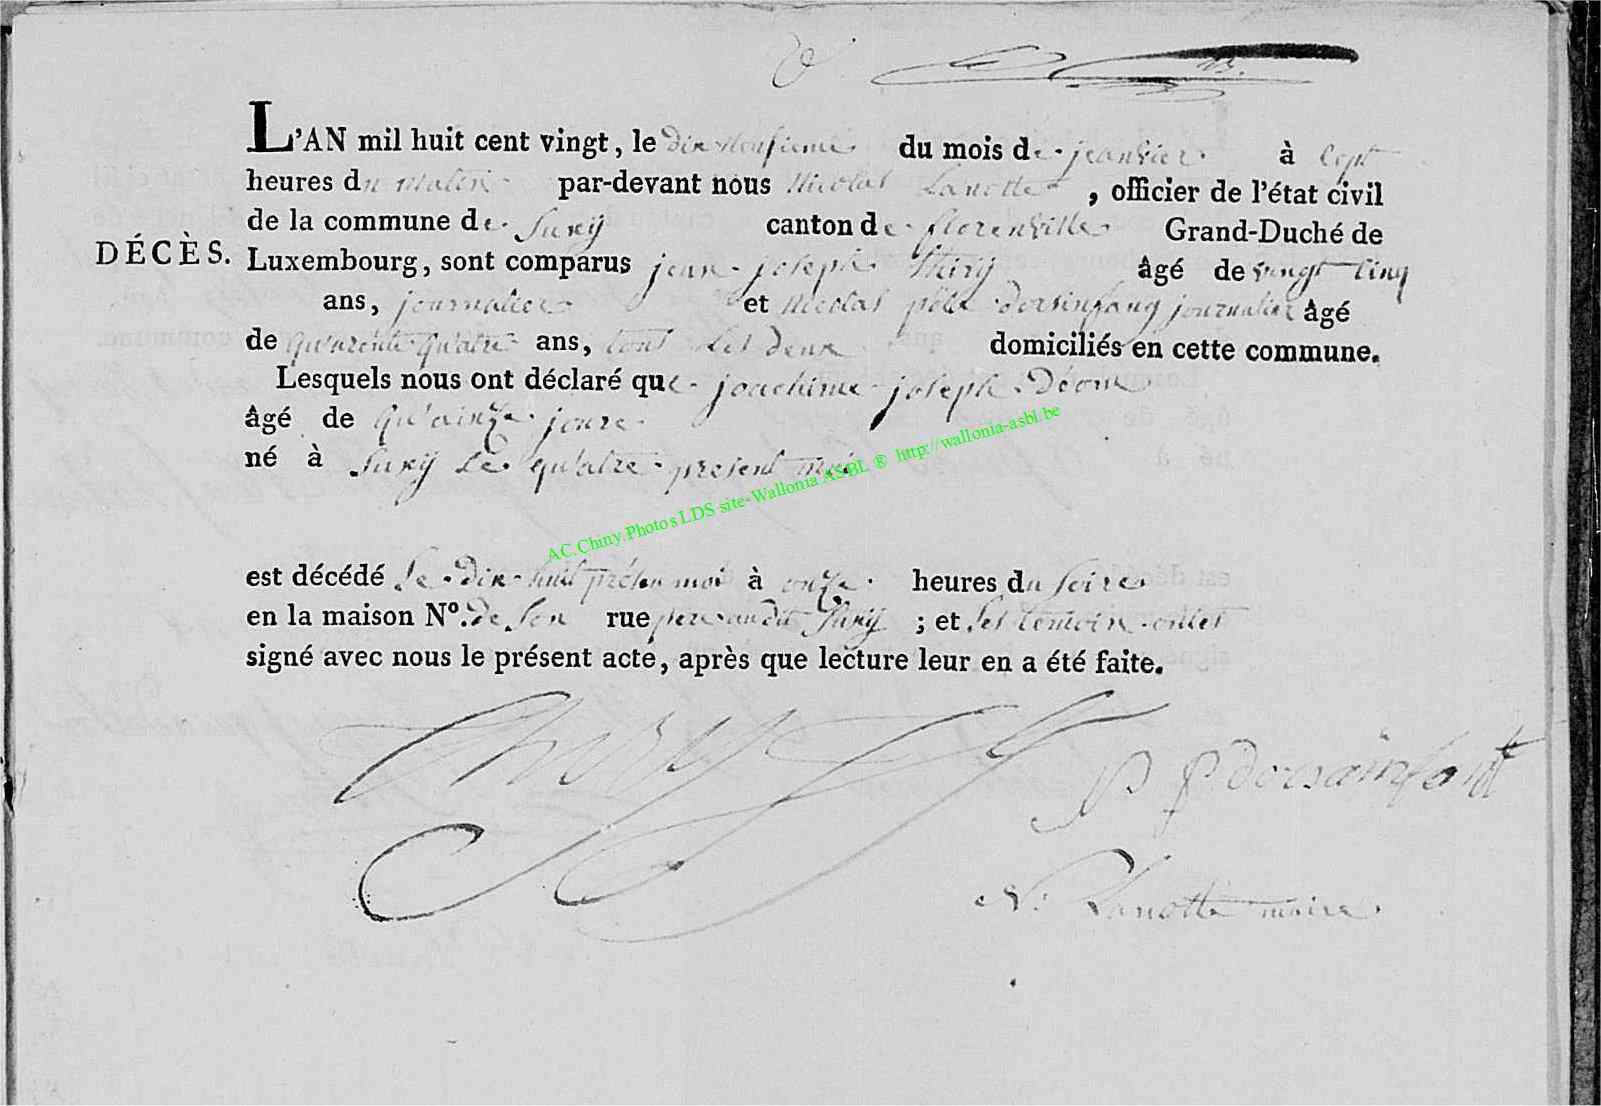 L'AN mil huit cent vingt, le dix neufieme du mois de jeanvier à sept
heures du matin par-devant nous Nicolas Lanotte, officier de l'état civil
de la commune de Suxy canton de florenville Grand-Duché de
DÉCÈS. Luxembourg, sont comparus jean joseph thiry âgé de vingt cinq
ans, journalier et Nicolas dorsinfang journalier âgé
de quarente quatre ans, tout les deux domiciliés en cette commune.
Lesquels nous ont déclaré que joachime joseph Déom
âgé de quainze jours
né à Suxy le quatre present moi
AC.Chiny.Photo's LDS site-Wallonia ASBL ® http://wallonia-asbl.be
est décédé le dix huit présen moi à onze heures du soire
en la maison N°. de son rue pere audit Suxy ; et les temoin ont
signé avec nous le présent acte, après que lecture leur en a été faite.
thiry
dorsainfant
N. Lanotte maire